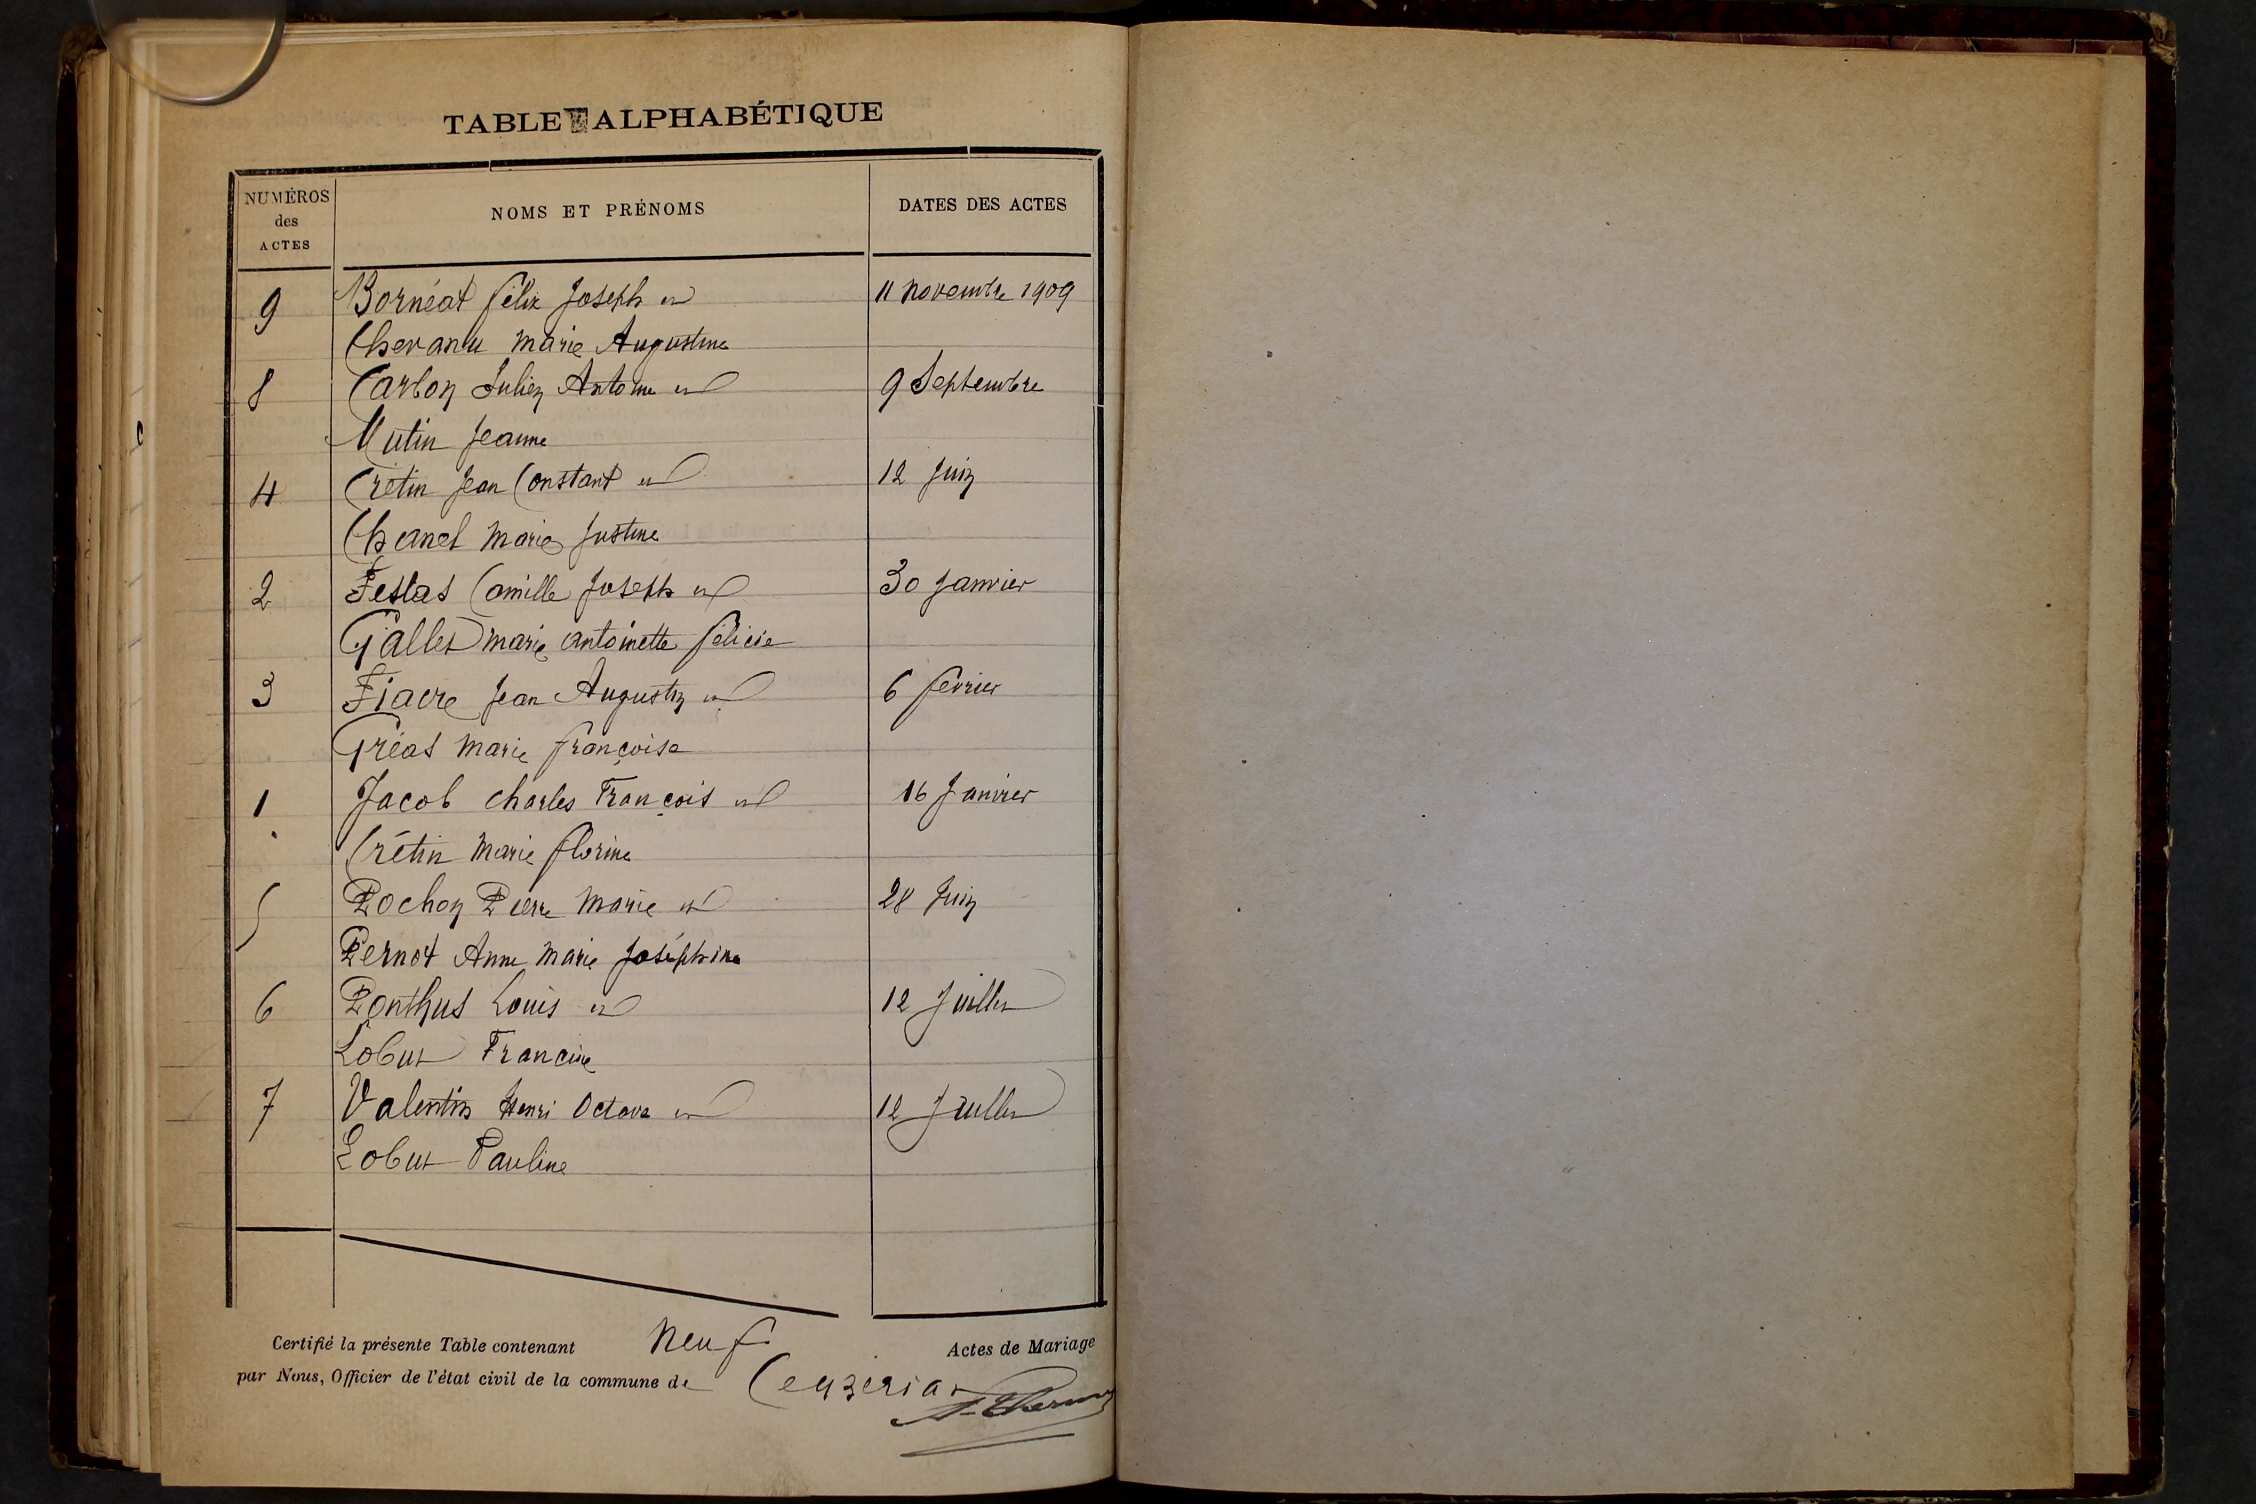 TABLE ALPHABÉTIQUE
NUMÉROS
des
ACTES
NOMS ET PRÉNOMS
DATES DES ACTES
9 Bornéat félix Joseph et 11 novembre 1909
marie Augustine
8 Carbon Julien Antoine et 9 Septembre
Mutin Jeanne
4 Crétin Jean Constant et 12 Juin
Chanel Marie Justine
2 Festas Camille Joseph et 30 Janvier
Gallet marie antoinette félicie
3 Fiacre Jean Augustin et 6 février
Gréas Marie françoise
1 Jacob charles François et 16 Janvier
Crétin Marie florine
5 Pochon Pierre Marie et 28 Juin
Pernot Anne Marie Joséphine
6 Ponthus Louis et 12 Juillet
Lobut Francine
7 Valentin Henri Octave et 12 Juillet
Lobut Pauline
Certifié la présente Table contenant neuf Actes de Mariage
par Nous, Officier de l'état civil de la commune de Ceyzeriat